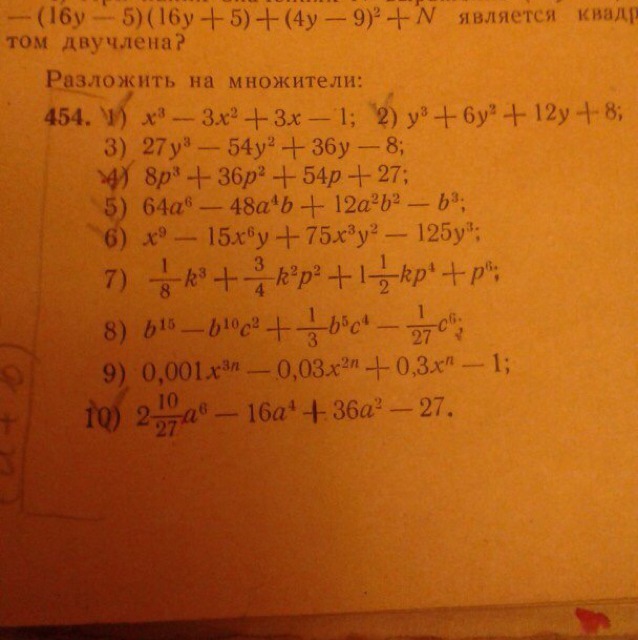 — (16y — 5)(16y + 5) + (4y — 9)² + N является квадр
том двучлена?
Разложить на множители:
454. 1) x³ — 3x² + 3x — 1; 2) y³ + 6y² + 12y + 8;
3) 27y³ — 54y² + 36y — 8;
4) 8p³ + 36p² + 54p + 27;
5) 64a⁶ — 48a⁴b + 12a²b² — b³;
6) x⁹ — 15x⁶y + 75x³y² — 125y³;
7) 1/8 k³ + 3/4 k²p² + 1 1/2 kp⁴ + p⁶;
8) b¹⁵ — b¹⁰c² + 1/3 b⁵c⁴ — 1/27 c⁶;
9) 0,001x³ⁿ — 0,03x²ⁿ + 0,3xⁿ — 1;
10) 2 10/27 a⁶ — 16a⁴ + 36a² — 27.